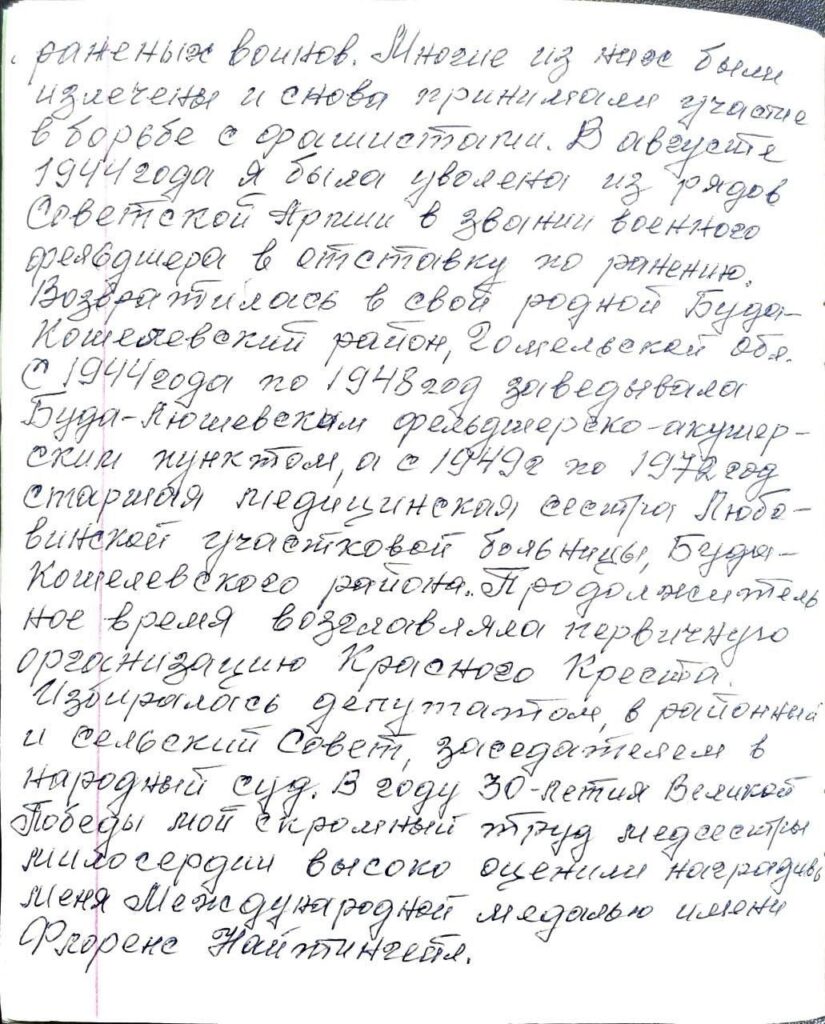 раненых воинов. Многие из них были
излечены и снова принимали участие
в борьбе с фашистами. В августе
1944 года я была уволена из рядов
Советской Армии в звании военного
фельдшера в отставку по ранению.
Возвратилась в свой родной Буда-
Кошелевский район, Гомельской обл.
С 1944 года по 1948 год заведывала
Буда-Люшевским фельдшерско-акушер-
ским пунктом, а с 1949г по 1972 год
старшая медицинская сестра Любо-
винской участковой больницы, Буда-
Кошелевского района. Продолжитель
ное время возглавляла первичную
организацию Красного Креста.
Избиралась депутатом, в районный
и сельский Совет, заседателем в
народный суд. В году 30-летия Великой
Победы мой скромный труд медсестры
милосердии высоко оценили наградив
меня Международной медалью имени
Флоренс Найтингейл.